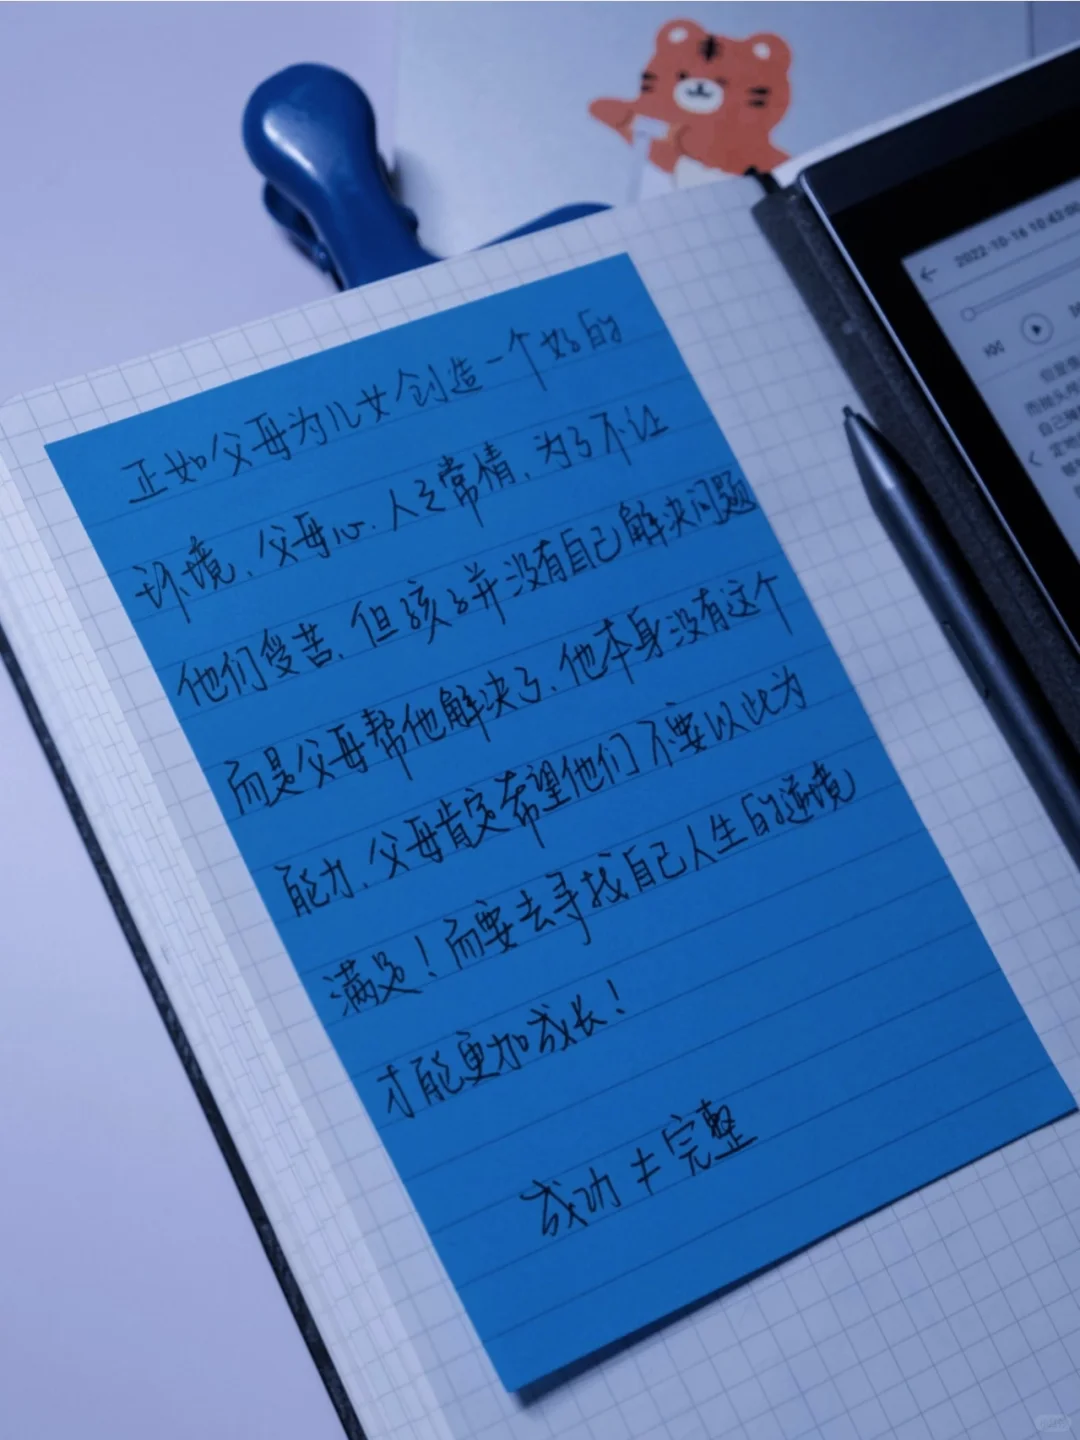 正如父母为儿女创造一个好的
环境、父母心.人之常情.为了不让
他们受苦.但孩子并没有自己解决问题
而是父母帮他解决了.他本身没有这个
能力.父母肯定希望他们不要以此为
满足！而要去寻找自己人生的逆境
才能更加成长！
成功≠完整
2022-10-16 10:43:00